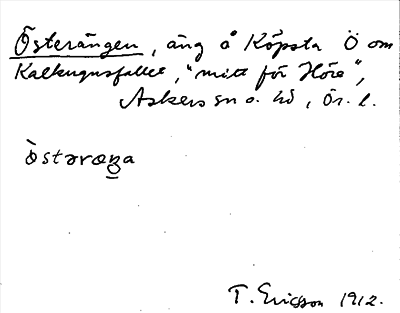 Österängen, äng å Köpsta Ö om
Kalkugnsfallet, "mitt för Höre",
Askers sn o. hd, Ör. l.
östəræŋa
T. Ericsson 1912.